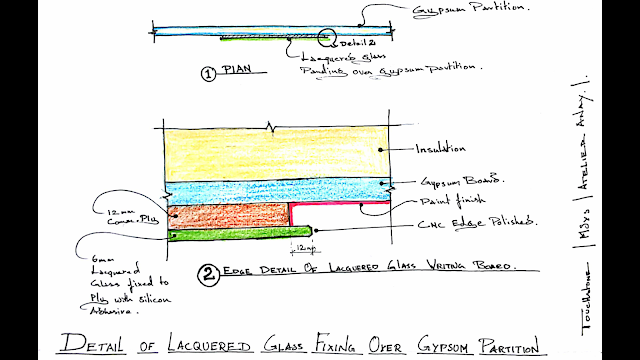 Gypsum Partition.
Detail 2
Lacquered Glass
Panding over Gypsum Partition.
1 PLAN
Insulation
Gypsum Board.
Paint finish
CNC Edge Polished.
12mm
Comm. Ply
12mm
6mm
Lacquered
Glass fixed to
Ply with silicon
Adhesive.
2 EDGE DETAIL OF LACQUERED GLASS WRITING BOARD.
DETAIL OF LACQUERED GLASS FIXING OVER GYPSUM PARTITION
Touchstone | Mdrs | ATELIER ANAY.